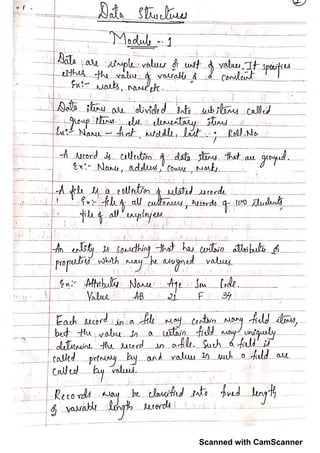 Data Structures
Module - 1
Data are simple values or unit of values. It specifies
either the value of variable or a constant
Ex:- Marks, name etc.
Data items are divided into subitems called
group items else elementary items
Ex:- Name - first, middle, last ; Roll.No
A record is collection of data items that are grouped.
Ex:- Name, address, course, marks.
A file is a collection of related records.
Ex:- file of all customers, records of 100 students,
file of all employees
An entity is something that has certain attributes or
properties which may be assigned values.
Ex:- Attributes Name Age Sex Code
Value AB 21 F 34
Each record in a file may contain many field items,
but the value in a certain field may uniquely
determine the record in a file. Such a field is
called primary key and values in such a field are
called key values.
Records may be classified into fixed length
or variable length records
Scanned with CamScanner